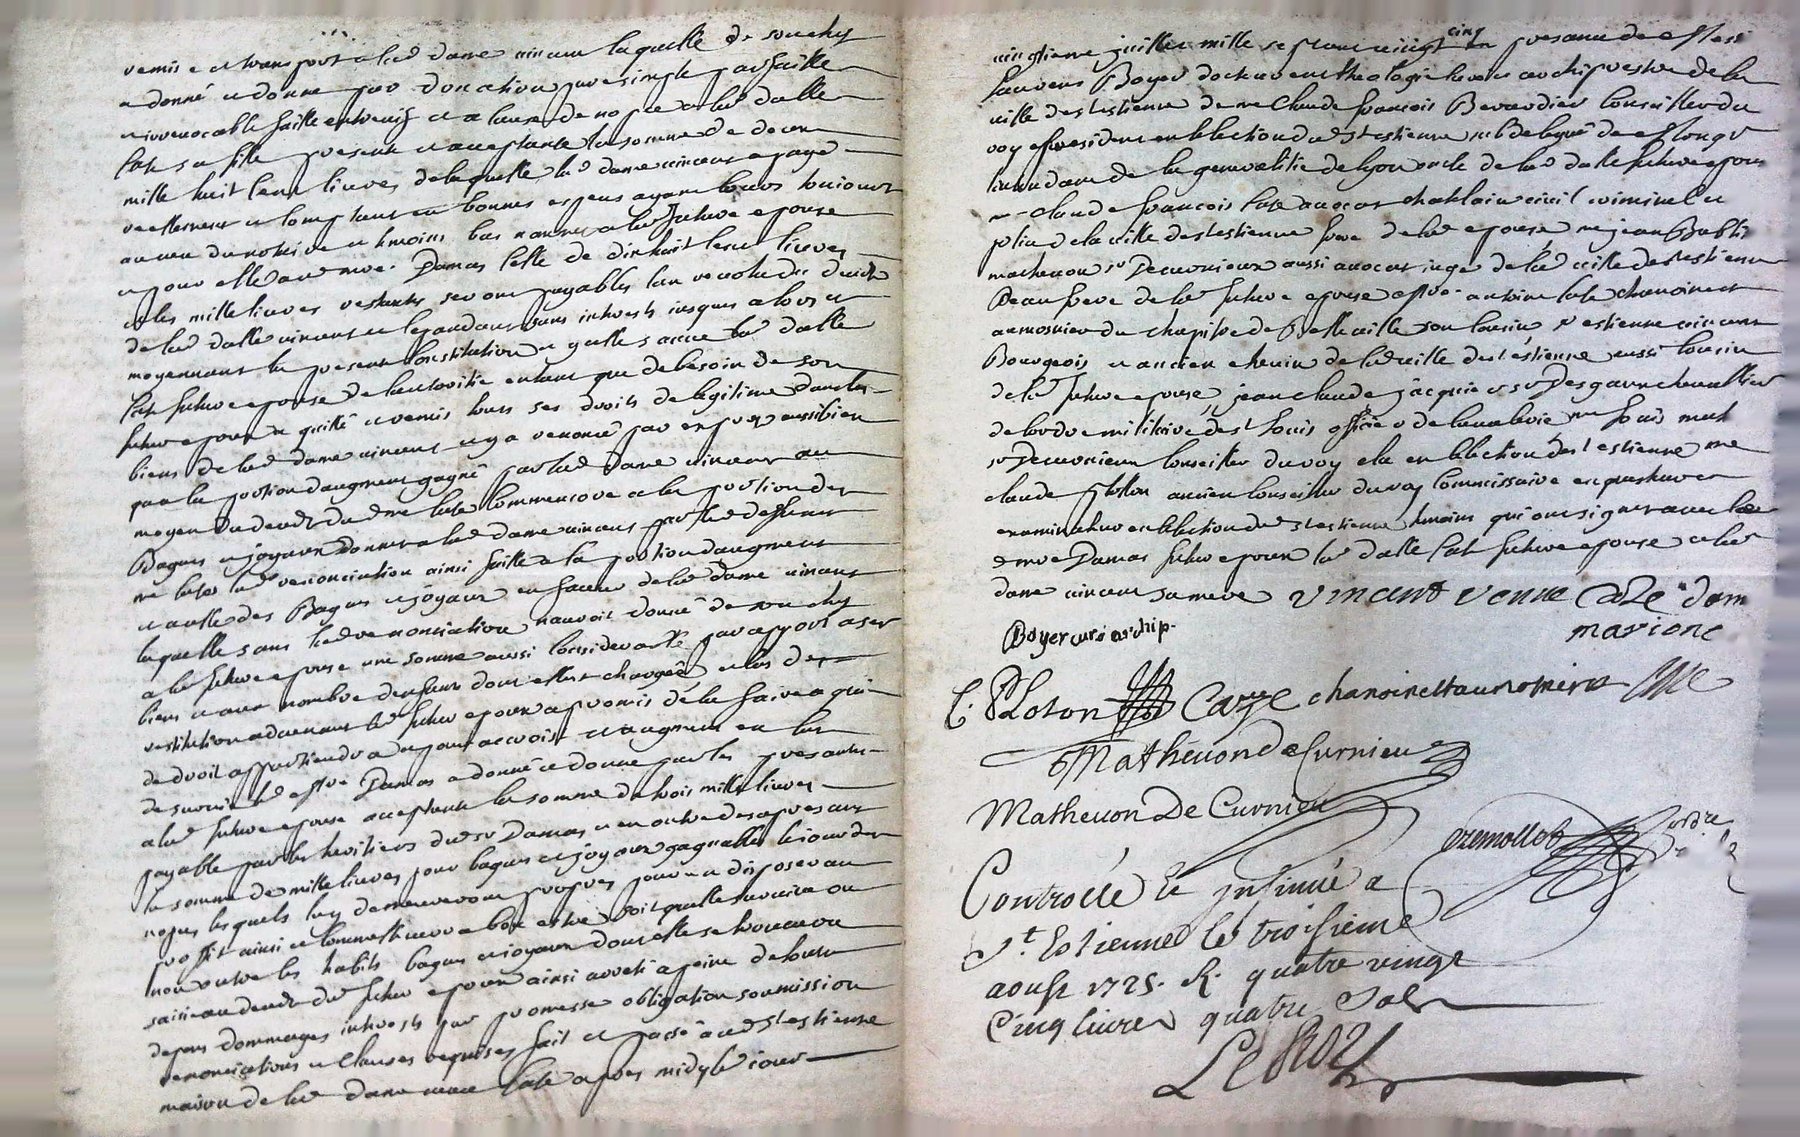 remis et transport a lad dame vincent laquelle de son chef
a donné et donne par donation pure simple parfaitte
et irrevocable faitte entre vifs et a cause de nopces a lad dalle
caze sa fille presente et acceptante la somme de douze
mille huit cent livres de laquelle lad dame vincent a payé
reellement et comptant en bonnes especes ayant cours
au veu du notaire et tmoins bas nommés a lad future epouse
et pour elle aud Damas celle de dix huit cent livres
et les mille livres restants seront payables
de lad dalle vincent et cependant sans interests jusques alors et
moyennant la presente constitution lad dalle
caze future epouse de l'authorité entant que de besoin de son
futur epoux a quitté et remis tous ses droits de legitime dans les
biens de lad dame vincent et y a renoncé par exprez aussi bien
qua la portion daugment gagné par lad dame vincent au
moyen du deceds dud me caze comme encore a la portion des
Bagues et joyaux donnés a lad dame vincent par led deffunt
me caze lad renonciation ainsi faitte a la portion daugment
et a celle des Bagues et joyaux en faveur de lad dame vincent
laquelle sans lad renonciation nauroit donné de son chef
a lad future epouse une somme aussi considerable par apport a ses
biens et aux nombre denfans dont elle est chargée et lors de
restitution advenant led futur epoux a promis de la faire a qui
de droit appartiendra et pour accroist et augment en cas
de survie led Damas a donné et donne par les presantes
a lad future epouse acceptante la somme de trois mille livres
payable par les heritiers dud sr Damas et en outre des a present
la somme de mille livres pour bagues et joyaux gagnables le jour des
nopces lesquels luy demeureront propres pour en disposer au
profit ainsi et comme elle verra bon estre soit quelle survive ou
non outre les habits bagues et joyaux dont elle se trouvera
saisie au deceds dud futur epoux ainsi arreté a peine de tous
depens dommages interests par promesse obligation soumission
renonciations et clauses requises fait et passé aud St estienne
maison de lad dame veuve caze apres midy le jour
vingtieme juillet mille sept cent vingt cinq en presance de
laurens Boyer docteur en theologie curé archiprestre de la
ville de st estienne de me Claude francois Berardier conseiller du
roy president en lelection dud St estienne subdelegué de
lintendant de la generalitté de lyon oncle de lad dalle future epouse
me claude francois caze avocat chatelain civil criminel et
police de la ville de st estienne frere de lad epouse me jean Babti
matheuon sr Decurnieux aussi avocat juge de lad ville de st estienne
Beaufrere de lad future epouse antoine caze chanoine et
aumosnier du chapitre de Belleville son cousin sr estienne vincent
Bourgeois et ancien echevin de lad ville de st estienne aussi cousin
de lad future epouse jean claude jacquier sr Desgaun chevallier
de lordre militaire de st Louis officier de cavalerie me louis mat
sr Decurnieux conseiller du roy elu en lelection de st estienne me
claude Ploton ancien conseiller du roy commissaire enquesteur et
examinateur en lelection dud St estienne tmoins qui ont signé avec led
Damas futur epoux lad dalle caze future epouse et lad
dame vincent sa mere vincent veuve Caze dam
marione
Boyer curé archip.
C. Ploton Caze chanoine et aumonier
Matheuon de Curnieu
Matheuon De Curnieu
Controllé et Insinué a
St. Estienne le troisieme
aoust 1725. R. quatre vingt
Cinq livres quatre Sols
Le Roy